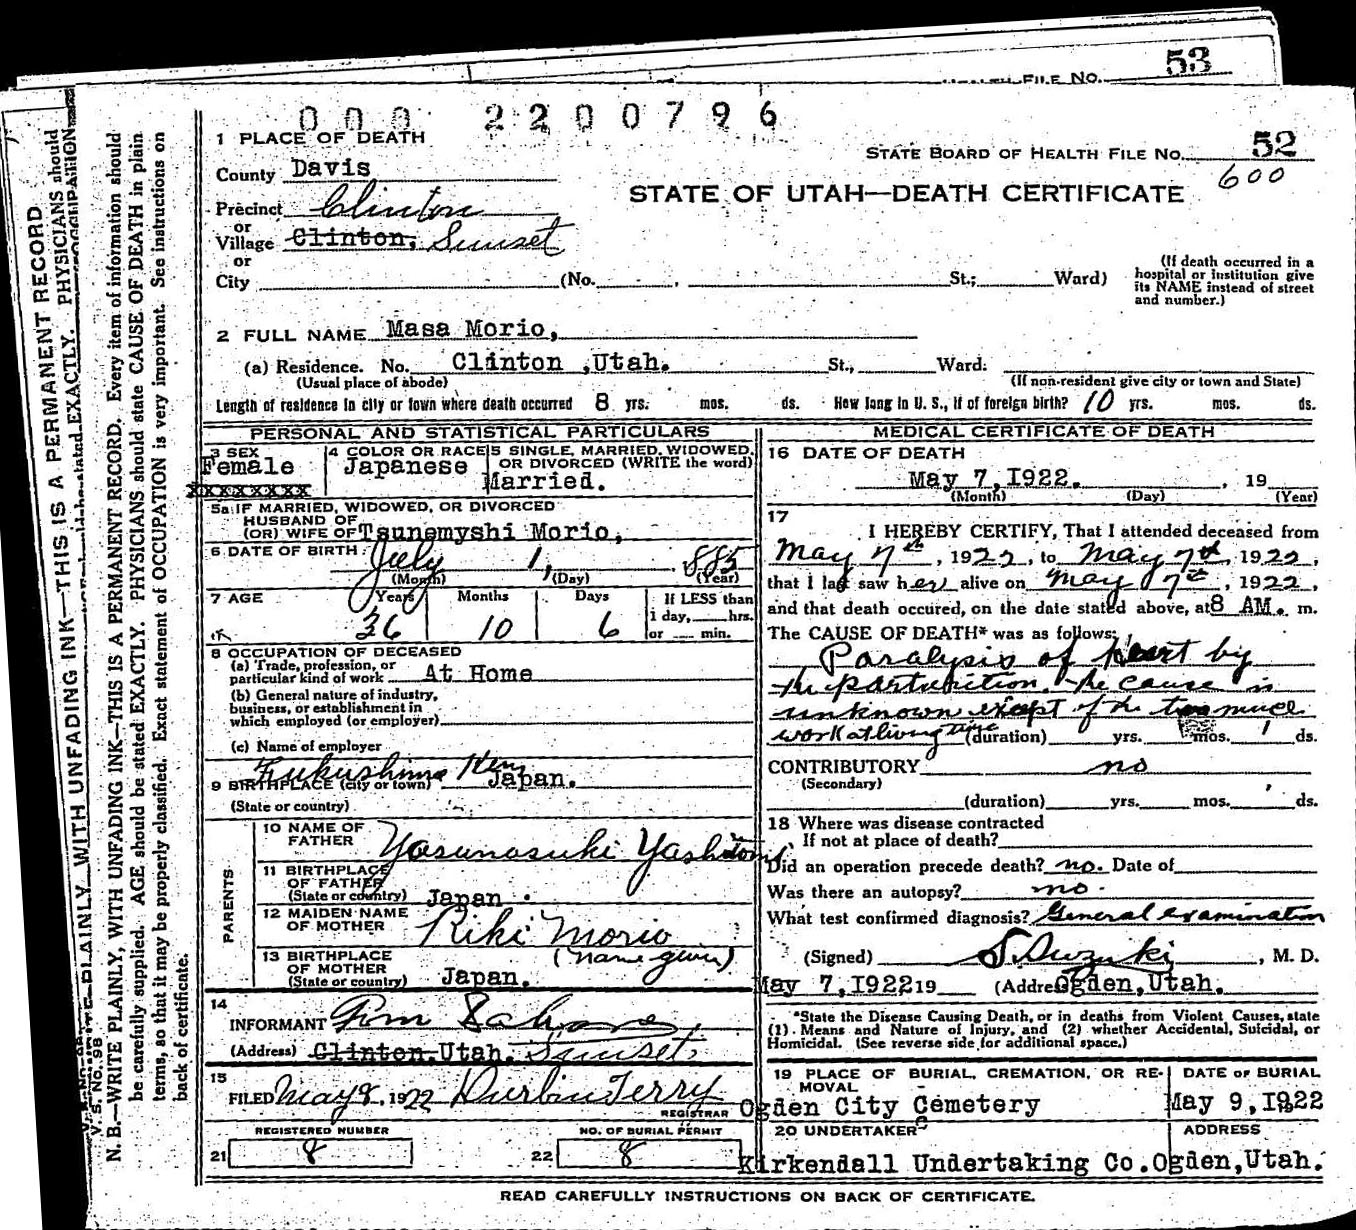 53
HEALTH FILE No.
000 2200796
1 PLACE OF DEATH
STATE BOARD OF HEALTH FILE No. 52
600
County Davis
STATE OF UTAH—DEATH CERTIFICATE
Precinct Clinton
or
Village Clinton, Sunset
or
City (No. , St.; Ward)
(If death occurred in a
hospital or institution give
its NAME instead of street
and number.)
2 FULL NAME Masa Morio,
(a) Residence. No. Clinton ,Utah. St., Ward.
(Usual place of abode) (If non-resident give city or town and State)
Length of residence in city or town where death occurred 8 yrs. mos. ds. How long in U. S., if of foreign birth? 10 yrs. mos. ds.
PERSONAL AND STATISTICAL PARTICULARS
3 SEX
Female
xxxxxxxx
4 COLOR OR RACE
Japanese
5 SINGLE, MARRIED, WIDOWED,
OR DIVORCED (WRITE the word)
Married.
5a IF MARRIED, WIDOWED, OR DIVORCED
HUSBAND OF
(OR) WIFE OF Tsunemyshi Morio,
6 DATE OF BIRTH
July 1, 885
(Month) (Day) (Year)
7 AGE Years Months Days If LESS than
1 day, hrs.
36 10 6 or min.
8 OCCUPATION OF DECEASED
(a) Trade, profession, or
particular kind of work At Home
(b) General nature of industry,
business, or establishment in
which employed (or employer)
(c) Name of employer
Fukushima Ken
9 BIRTHPLACE (city or town) Japan.
(State or country)
PARENTS
10 NAME OF
FATHER Yasunosuki Yashitomi
11 BIRTHPLACE
OF FATHER
(State or country) Japan .
12 MAIDEN NAME
OF MOTHER Riki Morio
(name given)
13 BIRTHPLACE
OF MOTHER
(State or country) Japan.
14
INFORMANT
(Address) Clinton.Utah. Sunset,
15
FILED May 8, 1922 Durbin Terry
REGISTRAR
REGISTERED NUMBER NO. OF BURIAL PERMIT
21 8 22 8
MEDICAL CERTIFICATE OF DEATH
16 DATE OF DEATH
May 7,I922. , 19
(Month) (Day) (Year)
17
I HEREBY CERTIFY, That I attended deceased from
May 7th, 1922, to May 7th, 1922,
that I last saw her alive on May 7th, 1922,
and that death occured, on the date stated above, at 8 AM. m.
The CAUSE OF DEATH* was as follows:
Paralysis of heart by
the parturition. the cause is
unknown except of the too much
work at living time
(duration) yrs. mos. 1 ds.
CONTRIBUTORY no
(Secondary)
(duration) yrs. mos. ds.
18 Where was disease contracted
If not at place of death?
Did an operation precede death? no. Date of
Was there an autopsy? no.
What test confirmed diagnosis? General examination
(Signed) S. Suzuki, M. D.
May 7,I922 19 (Address Ogden,Utah.
*State the Disease Causing Death, or in deaths from Violent Causes, state
(1) Means and Nature of Injury, and (2) whether Accidental, Suicidal, or
Homicidal. (See reverse side for additional space.)
19 PLACE OF BURIAL, CREMATION, OR RE-
MOVAL
Ogden City Cemetery
DATE OF BURIAL
May 9,I922
20 UNDERTAKER ADDRESS
Kirkendall Undertaking Co.Ogden,Utah.
READ CAREFULLY INSTRUCTIONS ON BACK OF CERTIFICATE.
V. S. No. 98
N. B.—WRITE PLAINLY, WITH UNFADING INK—THIS IS A PERMANENT RECORD. Every item of information should
be carefully supplied. AGE should be stated EXACTLY. PHYSICIANS should state CAUSE OF DEATH in plain
terms, so that it may be properly classified. Exact statement of OCCUPATION is very important. See instructions on
back of certificate.
WITH UNFADING INK—THIS IS A PERMANENT RECORD
EXACTLY. PHYSICIANS should